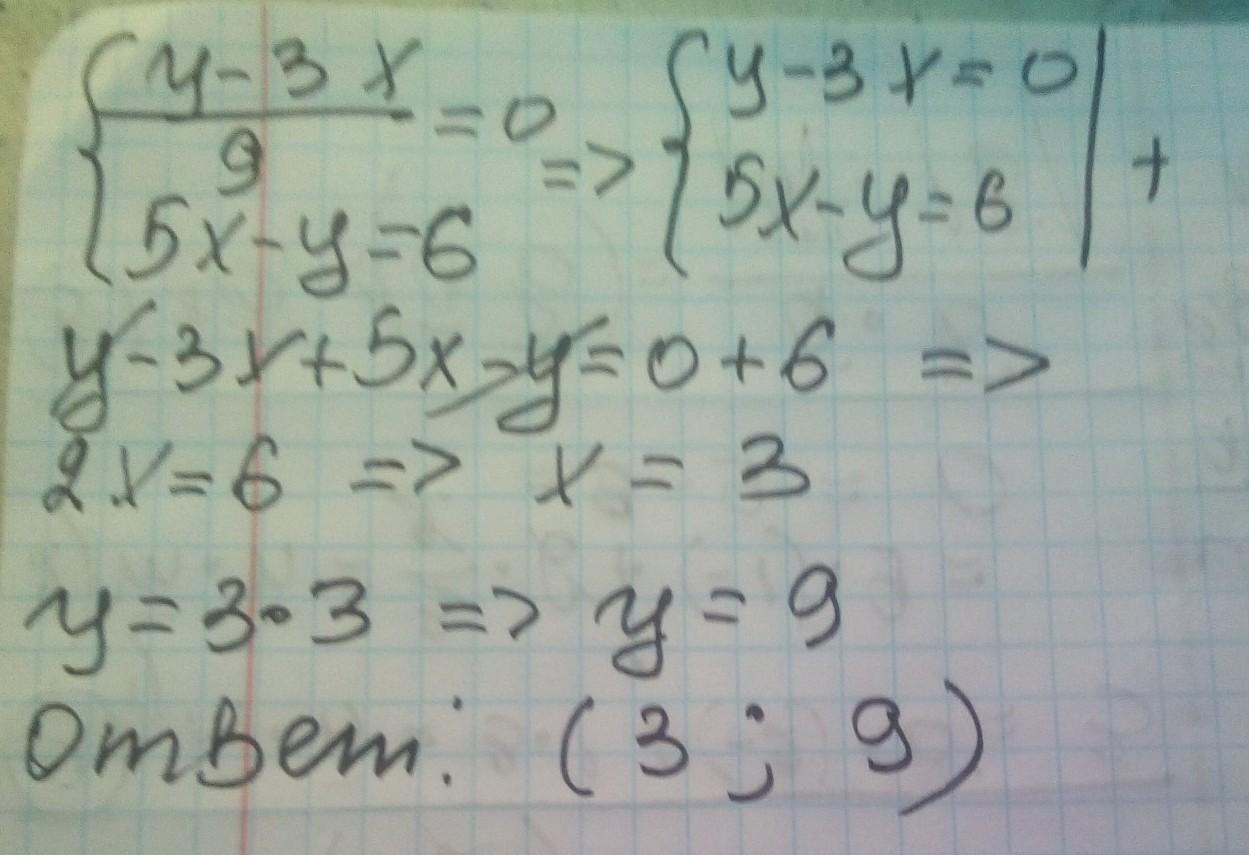 { (y-3x)/9 = 0 => { y-3x=0 | +
5x-y=6 5x-y=6
y-3x+5x-y=0+6 =>
2x=6 => x=3
y=3·3 => y=9
Ответ: (3; 9)